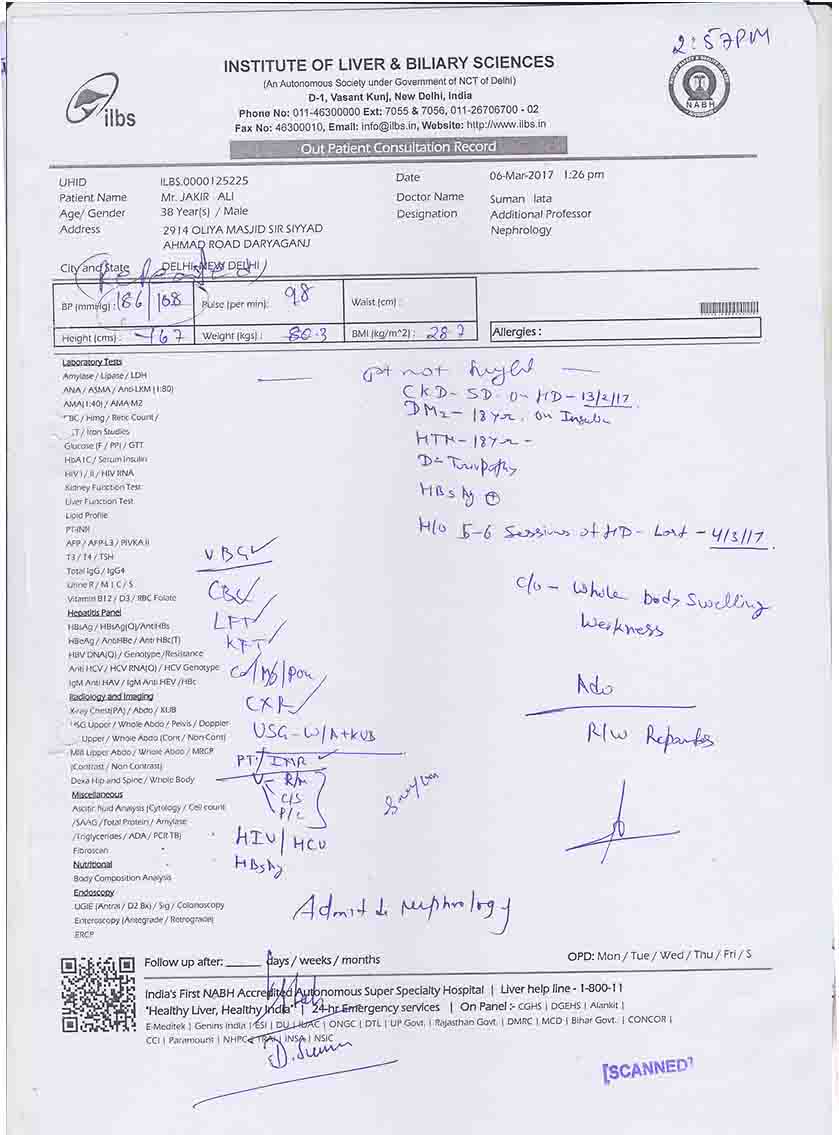 2:57PM
INSTITUTE OF LIVER & BILIARY SCIENCES
(An Autonomous Society under Government of NCT of Delhi)
D-1, Vasant Kunj, New Delhi, India
Phone No: 011-46300000 Ext: 7055 & 7056, 011-26706700 - 02
Fax No: 46300010, Email: info@ilbs.in, Website: http://www.ilbs.in
ilbs
NABH
Out Patient Consultation Record
UHID ILBS.0000125225 Date 06-Mar-2017 1:26 pm
Patient Name Mr. JAKIR ALI Doctor Name Suman lata
Age/ Gender 38 Year(s) / Male Designation Additional Professor
Address 2914 OLIYA MASJID SIR SIYYAD Nephrology
AHMAD ROAD DARYAGANJ
City and State DELHI-NEW DELHI
BP (mmHg) : 186/108 Pulse (per min): 98 Waist (cm) :
Height (cms) : 167 Weight (kgs) : 80.3 BMI (kg/m^2) : 28.7 Allergies :
Laboratory Tests
Amylase / Lipase / LDH pt not
ANA / ASMA / Anti-LKM (1:80) CKD- 5D- 0- HD- 13/2/17
AMA(1:40) / AMA-M2 DM2- 18 yr. on
CBC / Hmg / Retic Count /
/ Iron Studies
Glucose (F / PP) / GTT HTN- 18 yr -
HbA1C / Serum Insulin
HIV I / II / HIV RNA
Kidney Function Test HBsAg ⊕
Liver Function Test
Lipid Profile
PT-INR H/o 5-6 Sessions of HD- Last - 4/3/17
AFP / AFP-L3 / PIVKA II
T3 / T4 / TSH VBG✓
Total IgG / IgG4
Urine R / M | C / S C/o - Whole body Swelling
Vitamin B12 / D3 / RBC Folate CBC✓
Hepatitis Panel Weakness
HBsAg / HBsAg(Q)/AntiHBs LFT✓
HBeAg / AntiHBe / Anti HBc(T) KFT✓
HBV DNA(Q) / Genotype /Resistance
Anti HCV / HCV RNA(Q) / HCV Genotype Ca/Mg/
IgM Anti HAV / IgM Anti HEV /HBc Adv
Radiology and Imaging
X-ray Chest(PA) / Abdo / KUB CXR✓
USG Upper / Whole Abdo / Pelvis / Doppler USG-W/A+KUB
Upper / Whole Abdo (Cont / Non Cont) R/w
MRI Upper Abdo / Whole Abdo / MRCP PT/INR✓
(Contrast / Non Contrast)
Dexa Hip and Spine / Whole Body U- R/M
Miscellaneous C/S
Ascitic fluid Analysis (Cytology / Cell count P/C
/SAAG /Total Protein / Amylase
/Triglycerides / ADA / PCR TB) HIV/HCV
Fibroscan
Nutritional HBsAg
Body Composition Analysis
Endoscopy
UGIE (Antral / D2 Bx) / Sig / Colonoscopy Admit Nephrology
Enteroscopy (Antegrade / Retrograde)
ERCP
Follow up after: ____ days / weeks / months OPD: Mon / Tue / Wed / Thu / Fri / S
India's First NABH Accredited Autonomous Super Specialty Hospital | Liver help line - 1-800-11
"Healthy Liver, Healthy India" | 24-hr Emergency services | On Panel :- CGHS | DGEHS | Alankit |
E-Meditek | Genins India | ESI | DU | IUAC | ONGC | DTL | UP Govt. | Rajasthan Govt. | DMRC | MCD | Bihar Govt. | CONCOR |
CCI | Paramount | NHPC | TRAI | INSA | NSIC
[SCANNED]